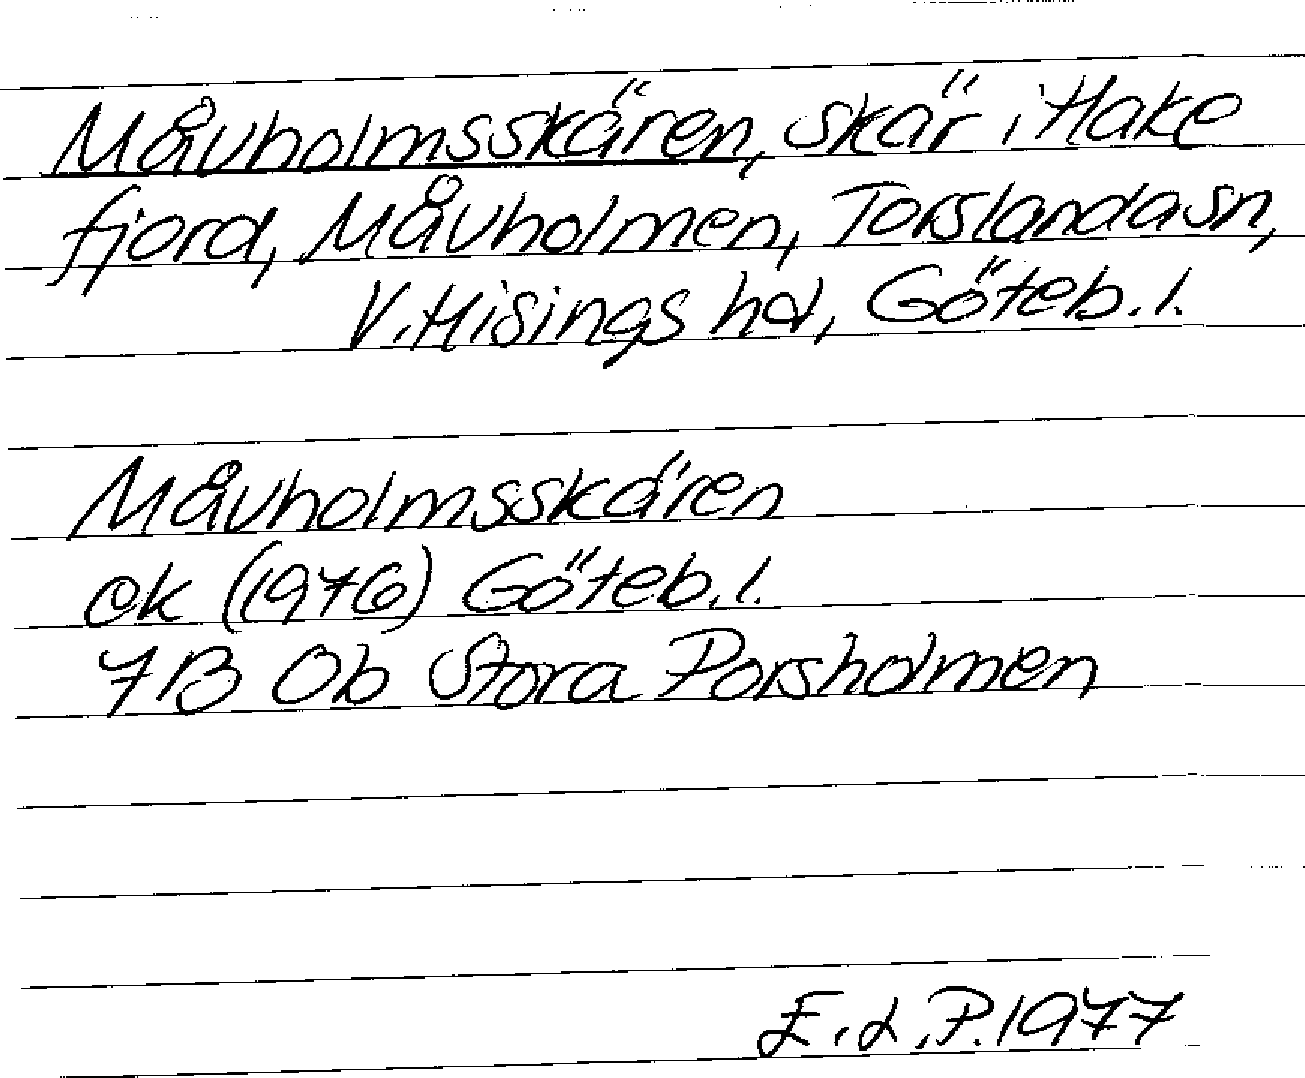 Måvholmsskären, skär i Hake
fjord, Måvholmen, Torslanda sn,
V. Hisings hd, Göteb. l.
Måvholmsskären
ek (1976) Göteb. l.
7B 0b Stora Porsholmen
E. L. P. 1977